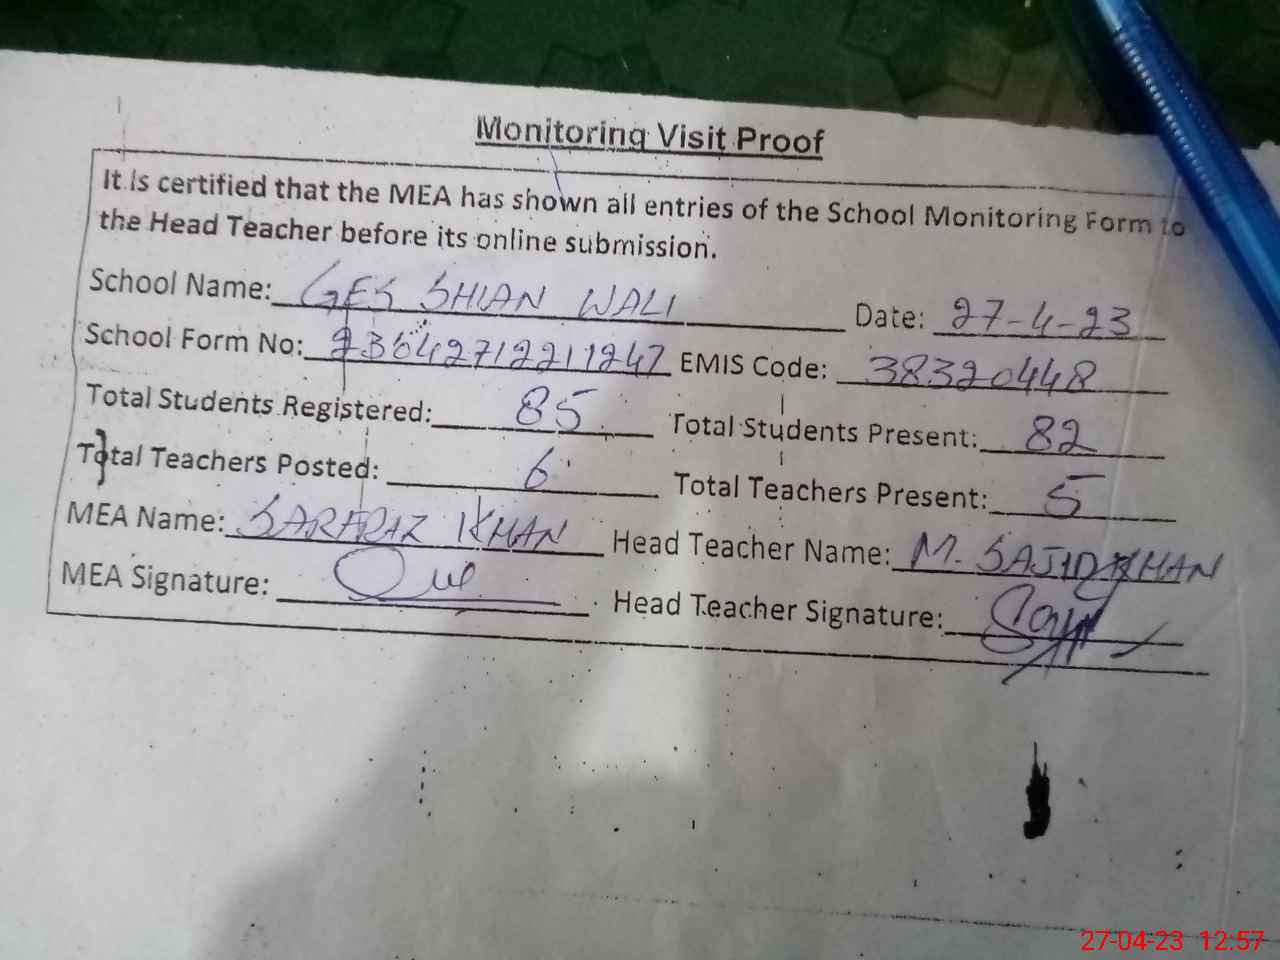 Monitoring Visit Proof
It is certified that the MEA has shown all entries of the School Monitoring Form to
the Head Teacher before its online submission.
School Name: GES SHIAN WALI Date: 27-4-23
School Form No: 23042712211247 EMIS Code: 38320448
Total Students Registered: 85 Total Students Present: 82
Total Teachers Posted: 6 Total Teachers Present: 5
MEA Name: SARFRAZ KHAN Head Teacher Name: M. SAJID KHAN
MEA Signature: Head Teacher Signature:
27-04-23 12:57